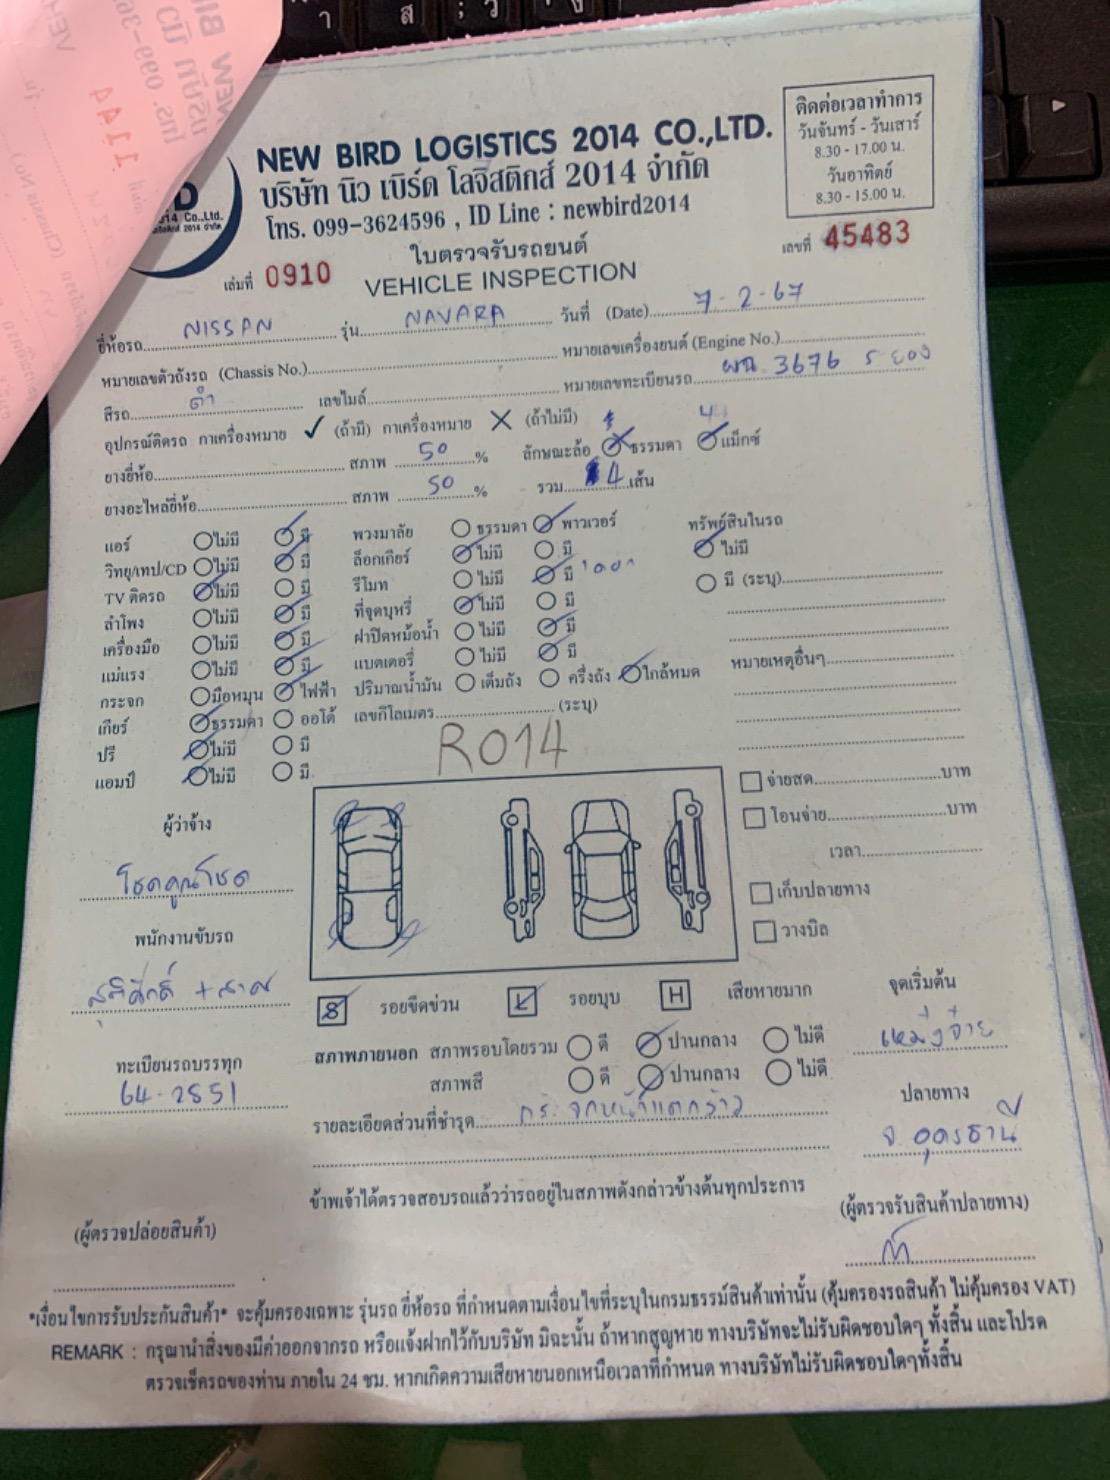 NEW BIRD LOGISTICS 2014 CO.,LTD.
บริษัท นิว เบิร์ด โลจิสติกส์ 2014 จำกัด
โทร. 099-3624596 , ID Line : newbird2014
ติดต่อเวลาทำการ
วันจันทร์ - วันเสาร์
8.30 - 17.00 น.
วันอาทิตย์
8.30 - 15.00 น.
ใบตรวจรับรถยนต์
VEHICLE INSPECTION
เล่มที่ 0910
เลขที่ 45483
ยี่ห้อรถ NISSAN รุ่น NAVARA วันที่ (Date) 7-2-67
หมายเลขตัวถังรถ (Chassis No.) หมายเลขเครื่องยนต์ (Engine No.)
สีรถ ดำ เลขไมล์ หมายเลขทะเบียนรถ ผฉ 3676 ระยอง
อุปกรณ์ติดรถ กาเครื่องหมาย ✓ (ถ้ามี) กาเครื่องหมาย ✕ (ถ้าไม่มี)
ยางยี่ห้อ สภาพ 50 % ลักษณะล้อ ธรรมดา แม็กซ์
ยางอะไหล่ยี่ห้อ สภาพ 50 % รวม 4 เส้น
แอร์ ไม่มี มี พวงมาลัย ธรรมดา พาวเวอร์ ทรัพย์สินในรถ
วิทยุ/เทป/CD ไม่มี มี ล็อกเกียร์ ไม่มี มี ไม่มี
TV ติดรถ ไม่มี มี รีโมท ไม่มี มี 1 ดอก มี (ระบุ)
ลำโพง ไม่มี มี ที่จุดบุหรี่ ไม่มี มี
เครื่องมือ ไม่มี มี ฝาปิดหม้อน้ำ ไม่มี มี
แม่แรง ไม่มี มี แบตเตอรี่ ไม่มี มี หมายเหตุอื่นๆ
กระจก มือหมุน ไฟฟ้า ปริมาณน้ำมัน เต็มถัง ครึ่งถัง ใกล้หมด
เกียร์ ธรรมดา ออโต้ เลขกิโลเมตร (ระบุ)
ปรี ไม่มี มี
แอมป์ ไม่มี มี
R014
จ่ายสด บาท
โอนจ่าย บาท
เวลา
เก็บปลายทาง
วางบิล
ผู้ว่าจ้าง
โชคคูณโชค
พนักงานขับรถ
ทะเบียนรถบรรทุก
64-2551
S รอยขีดข่วน L รอยบุบ H เสียหายมาก
สภาพภายนอก สภาพรอบโดยรวม ดี ปานกลาง ไม่ดี
สภาพสี ดี ปานกลาง ไม่ดี
รายละเอียดส่วนที่ชำรุด กระจกหน้าแตกร้าว
จุดเริ่มต้น
ปลายทาง
จ.อุดรธานี
ข้าพเจ้าได้ตรวจสอบรถแล้วว่ารถอยู่ในสภาพดังกล่าวข้างต้นทุกประการ
(ผู้ตรวจปล่อยสินค้า)
(ผู้ตรวจรับสินค้าปลายทาง)
*เงื่อนไขการรับประกันสินค้า* จะคุ้มครองเฉพาะ รุ่นรถ ยี่ห้อรถ ที่กำหนดตามเงื่อนไขที่ระบุในกรมธรรม์สินค้าเท่านั้น (คุ้มครองรถสินค้า ไม่คุ้มครอง VAT)
REMARK : กรุณานำสิ่งของมีค่าออกจากรถ หรือแจ้งฝากไว้กับบริษัท มิฉะนั้น ถ้าหากสูญหาย ทางบริษัทจะไม่รับผิดชอบใดๆ ทั้งสิ้น และโปรด
ตรวจเช็ครถของท่าน ภายใน 24 ชม. หากเกิดความเสียหายนอกเหนือเวลาที่กำหนด ทางบริษัทไม่รับผิดชอบใดๆทั้งสิ้น